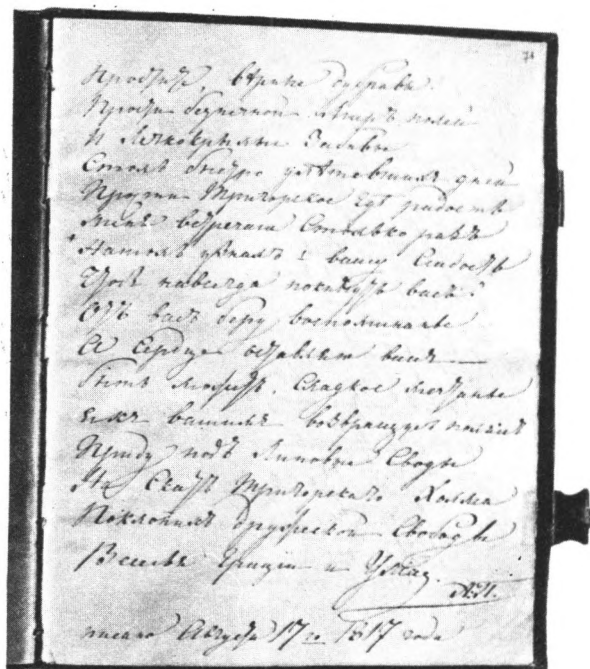 74
Простите, вѣрные дубравы
Прости безпечной миръ полей
И Легкокрылые Забавы
Столь быстро улетѣвшихъ дней
Прости Тригорское гдѣ радость
Меня встречала Столько разъ
На толь узналъ я вашу Сладость
Чтобъ навсегда покинуть васъ?
Отъ васъ беру воспоминанье
А Сердце оставляю вамъ —
Быть можетъ, Сладкое мечтанье
къ вашимъ возвращусь полямъ
Приду подъ Липовые Своды
На Скатъ Тригорскаго Холма
Поклонникъ дружеской Свободы
Веселья Грацiи и Ума.
А. П.
писано Августа 17го 1817 года